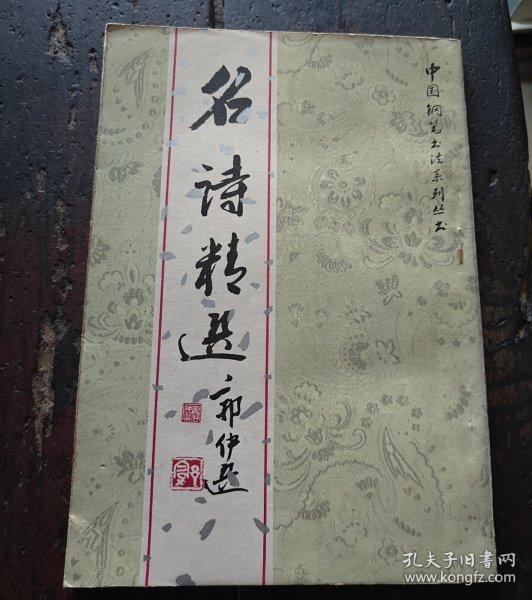 中国钢笔书法系列丛书
名诗精選
郭仲選
孔夫子旧书网
www.kongfz.com